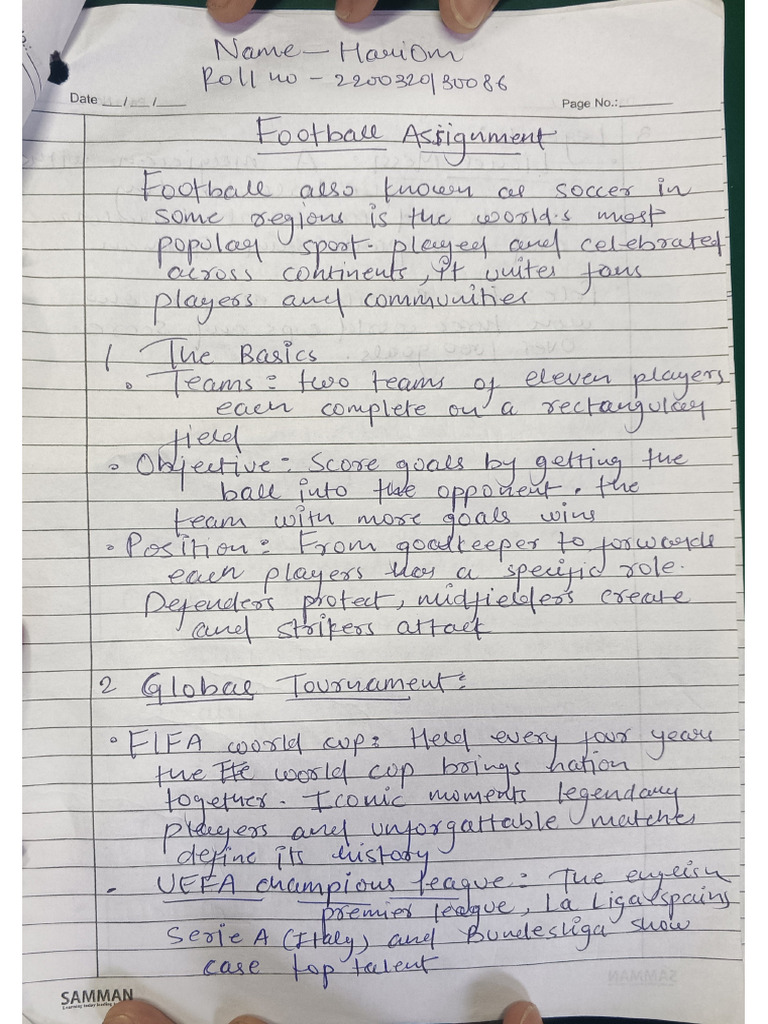 Name - Hariom
Roll no - 2200320130086
Date __/__/__
Page No.:
Football Assignment
Football also known as soccer in
some regions is the world's most
popular sport. played and celebrated
across continents, it unites fans
players and communities
1 The Basics
• Teams: two teams of eleven players
each complete on a rectangular
field
• Objective: Score goals by getting the
ball into the opponent. the
team with more goals wins
• Position: From goalkeeper to forwards
each players has a specific role.
Defenders protect, midfielders create
and strikers attack
2 Global Tournament:
• FIFA world cup: Held every four years
the world cup brings nation
together. Iconic moments legendary
players and unforgattable matches
define its history
• UEFA champions league: The english
premier league, La Liga spains
Serie A (Italy) and Bundesliga show
case top talent
SAMMAN